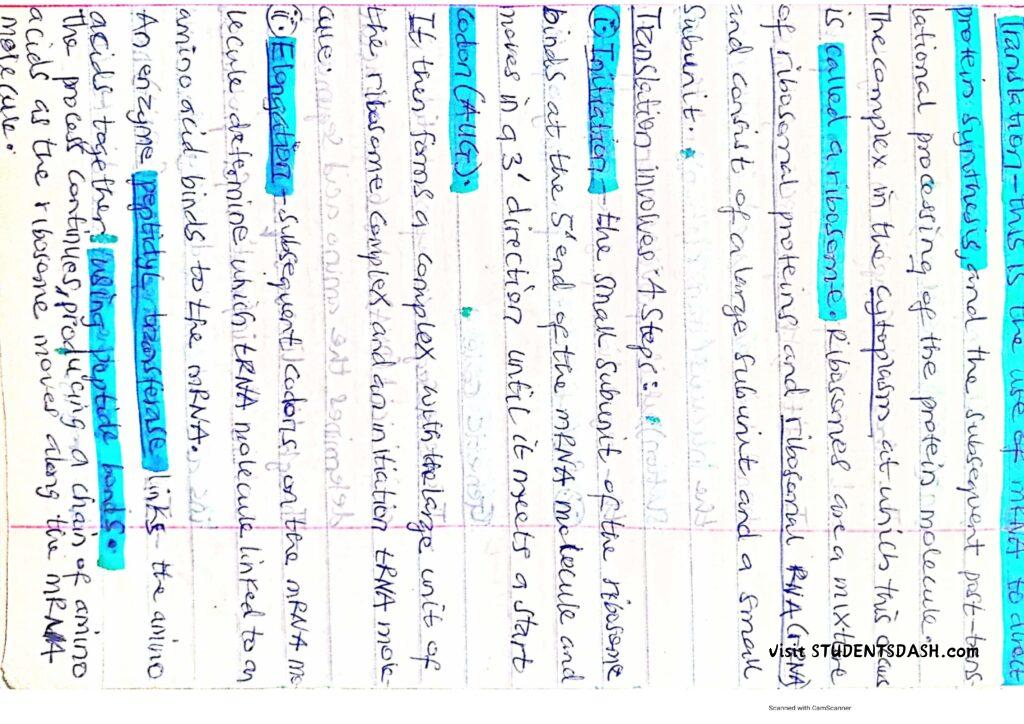 Translation - this is the use of mRNA to direct
protein synthesis, and the subsequent post-trans-
lational processing of the protein molecule.
The complex in the cytoplasm at which this occurs
is called a ribosome. Ribosomes are a mixture
of ribosomal proteins and ribosomal RNA (rRNA)
and consist of a large subunit and a small
subunit.
Translation involves 4 steps:
(i) Initiation - the small subunit of the ribosome
binds at the 5' end of the mRNA molecule and
moves in a 3' direction until it meets a start
codon (AUG).
It then forms a complex with the large unit of
the ribosome complex and an initiation tRNA mole-
cule.
(ii) Elongation - subsequent codons on the mRNA mo-
lecule determine which tRNA molecule linked to an
amino acid binds to the mRNA.
An enzyme peptidyl transferase links the amino
acids together using peptide bonds.
the process continues, producing a chain of amino
acids as the ribosome moves along the mRNA
molecule.
visit STUDENTSDASH.com
Scanned with CamScanner